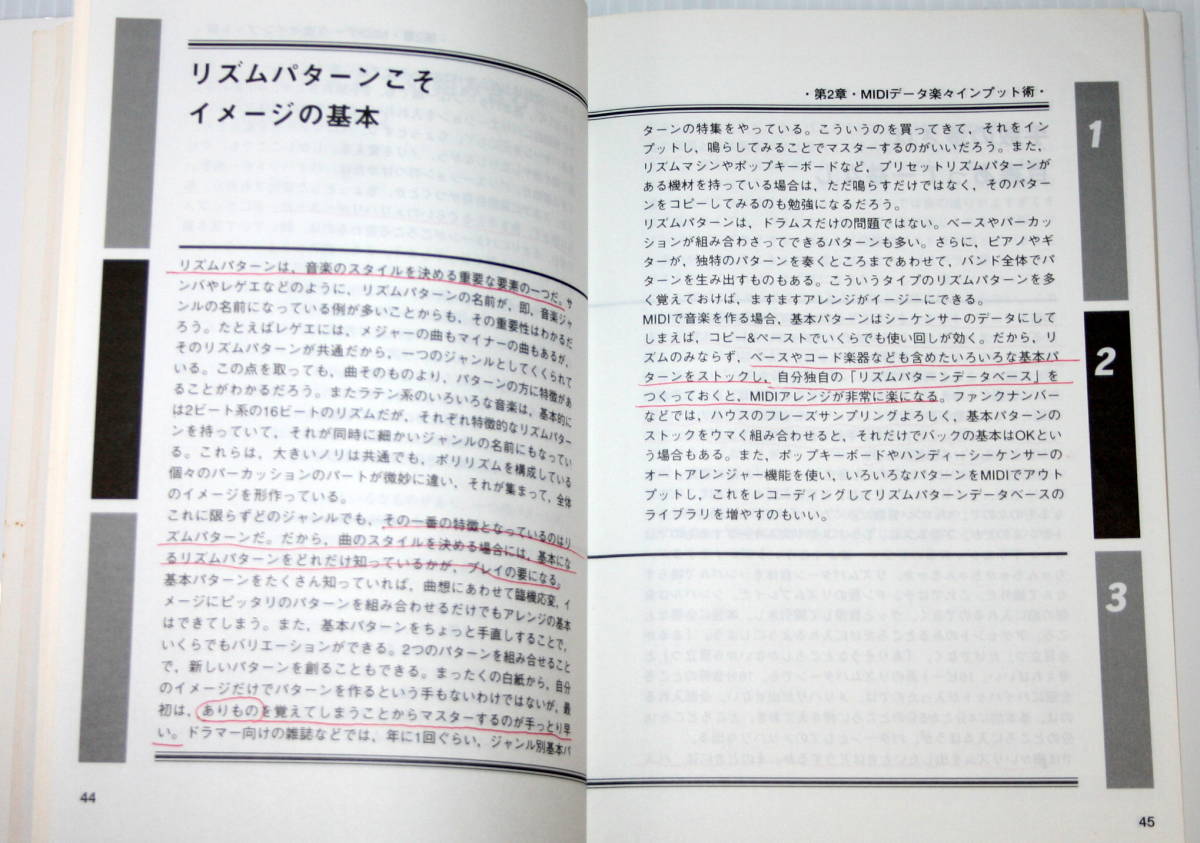 リズムパターンこそ
イメージの基本
リズムパターンは、音楽のスタイルを決める重要な要素の一つだ。サ
ンバやレゲエなどのように、リズムパターンの名前が、即、音楽ジャ
ンルの名前になっている例が多いことからも、その重要性はわかるだ
ろう。たとえばレゲエには、メジャーの曲もマイナーの曲もあるが、
そのリズムパターンが共通だから、一つのジャンルとしてくくられて
いる。この点を取っても、曲そのものより、パターンの方に特徴があ
ることがわかるだろう。またラテン系のいろいろな音楽は、基本的に
は2ビート系の16ビートのリズムだが、それぞれ特徴的なリズムパター
ンを持っていて、それが同時に細かいジャンルの名前にもなってい
る。これらは、大きいノリは共通でも、ポリリズムを構成している
個々のパーカッションのパートが微妙に違い、それが集まって、全体
のイメージを形作っている。
これに限らずどのジャンルでも、その一番の特徴となっているのはリ
ズムパターンだ。だから、曲のスタイルを決める場合には、基本にな
るリズムパターンをどれだけ知っているかが、プレイの要になる。
基本パターンをたくさん知っていれば、曲想にあわせて臨機応変、イ
メージにピッタリのパターンを組み合わせるだけでもアレンジの基本
はできてしまう。また、基本パターンをちょっと手直しすることで、
いくらでもバリエーションができる。2つのパターンを組み合せること
で、新しいパターンを創ることもできる。まったくの白紙から、自分
のイメージだけでパターンを作るという手もないわけではないが、最
初は、ありものを覚えてしまうことからマスターするのが手っとり早
い。ドラマー向けの雑誌などでは、年に1回ぐらい、ジャンル別基本パ
44
・第2章・MIDIデータ楽々インプット術・
ターンの特集をやっている。こういうのを買ってきて、それをイン
プットし、鳴らしてみることでマスターするのがいいだろう。また、
リズムマシンやポップキーボードなど、プリセットリズムパターンが
ある機材を持っている場合は、ただ鳴らすだけではなく、そのパター
ンをコピーしてみるのも勉強になるだろう。
リズムパターンは、ドラムスだけの問題ではない。ベースやパーカッ
ションが組み合わさってできるパターンも多い。さらに、ピアノやギ
ターが、独特のパターンを奏くところまであわせて、バンド全体でパ
ターンを生み出すものもある。こういうタイプのリズムパターンを多
く覚えておけば、ますますアレンジがイージーにできる。
MIDIで音楽を作る場合、基本パターンはシーケンサーのデータにして
しまえば、コピー&ペーストでいくらでも使い回しが効く。だから、リ
ズムのみならず、ベースやコード楽器なども含めたいろいろな基本パ
ターンをストックし、自分独自の「リズムパターンデータベース」を
つくっておくと、MIDIアレンジが非常に楽になる。ファンクナンバー
などでは、ハウスのフレーズサンプリングよろしく、基本パターンの
ストックをウマく組み合わせると、それだけでバックの基本はOKとい
う場合もある。また、ポップキーボードやハンディーシーケンサーの
オートアレンジャー機能を使い、いろいろなパターンをMIDIでアウト
プットし、これをレコーディングしてリズムパターンデータベースの
ライブラリを増やすのもいい。
1
2
3
45